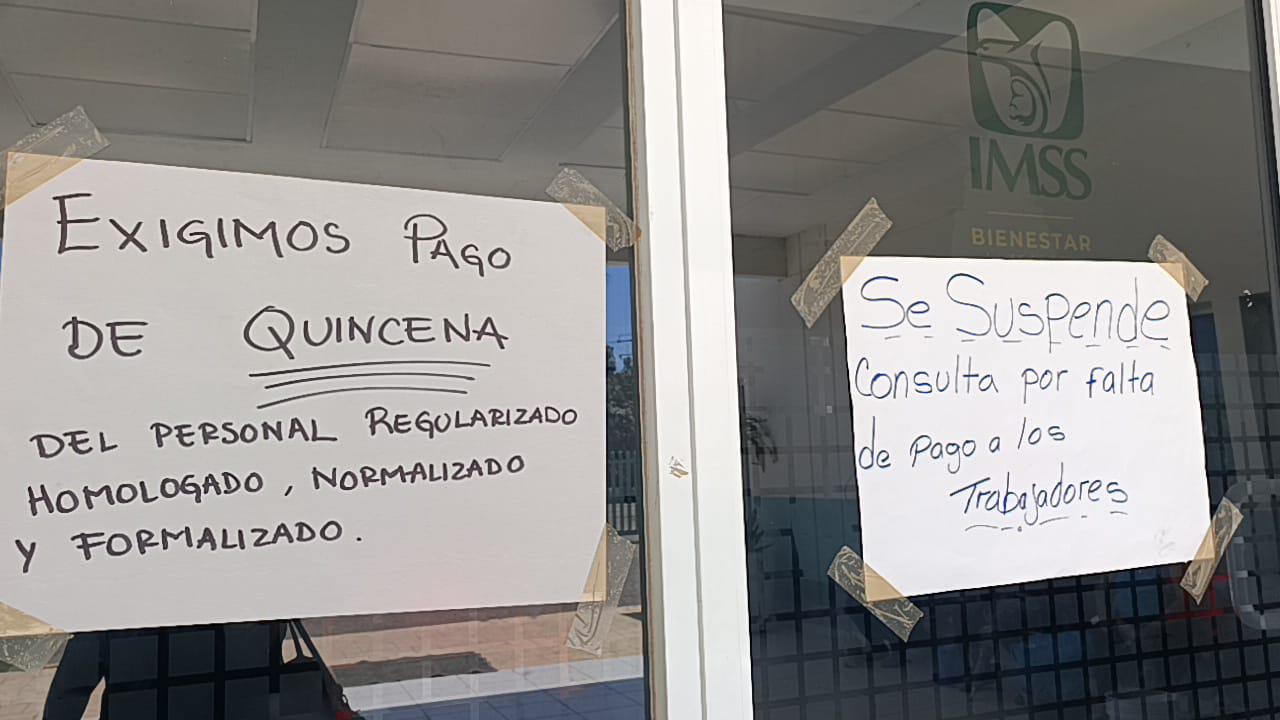 EXIGIMOS PAGO
DE QUINCENA
DEL PERSONAL REGULARIZADO
HOMOLOGADO, NORMALIZADO
Y FORMALIZADO.
IMSS
BIENESTAR
Se Suspende
Consulta por falta
de pago a los
Trabajadores